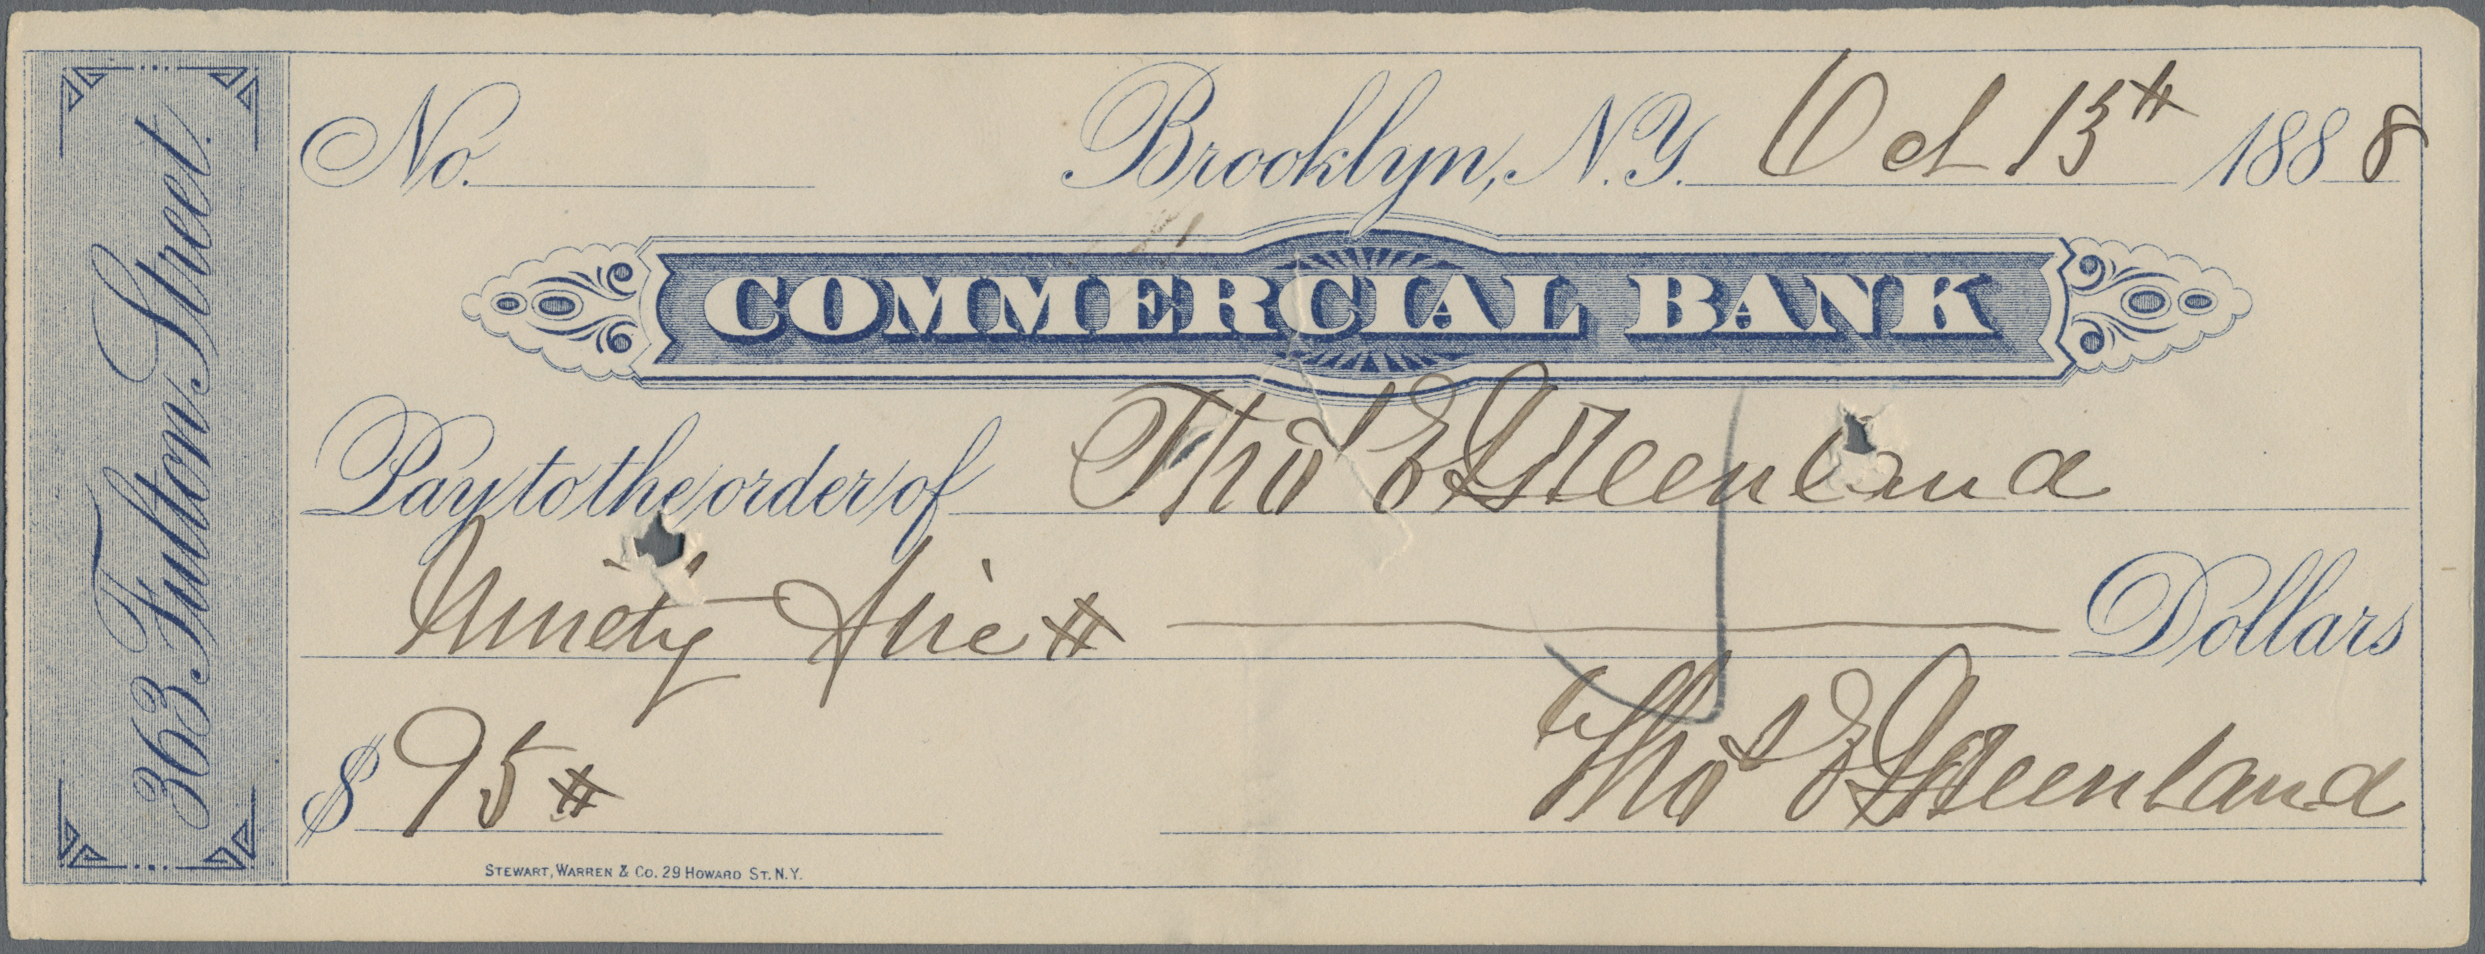 363 Fulton Street.
No. Brooklyn, N.Y. Oct 13th 1888
COMMERCIAL BANK
Pay to the order of Thos E Greenland
Ninety five Dollars
$ 95
Thos E Greenland
STEWART, WARREN & Co. 29 HOWARD ST. N.Y.